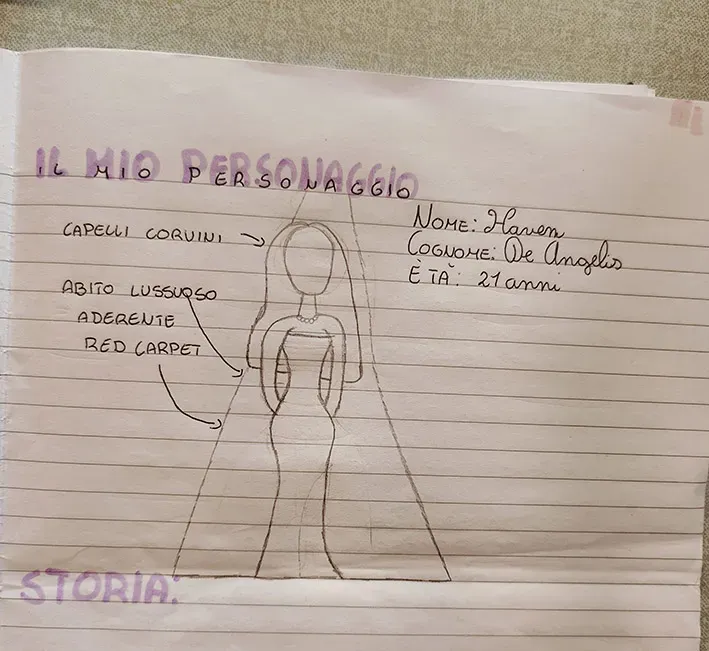 IL MIO PERSONAGGIO
NOME: Haven
COGNOME: De Angelis
ÈTÀ: 21 anni
CAPELLI CORVINI
ABITO LUSSUOSO
ADERENTE
RED CARPET
STORIA: